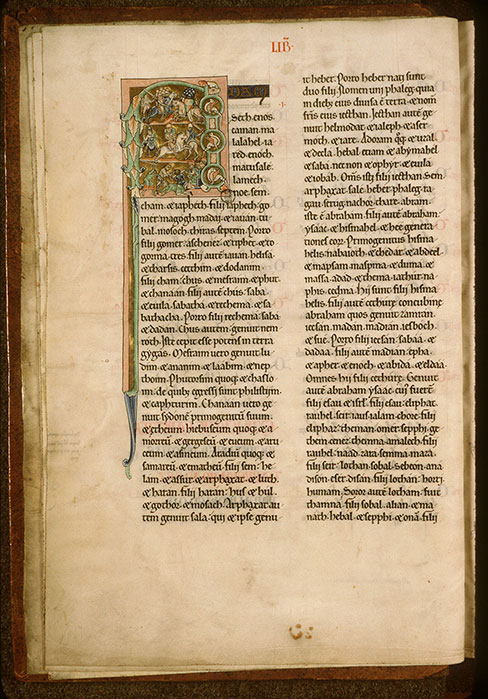 LIB̄
DAM
Seth enos
cainan ma
lalahel ia
red enoch
matusale
lamech
noe sem
cham ⁊ iapheth filij iapheth go
mer magogh madaij ⁊ iauan tu
bal mosoch thiras septem Porro
filij gomer aschenez ⁊ riphet ⁊ to
gorma tres filij autē iauan helisa
⁊ tharsis cetthim ⁊ dodanim
filij cham chus ⁊ mesraim ⁊ phut
⁊ chanaan filij autē chus saba
⁊ euila sabatha ⁊ rechema ⁊ sa
bathacha Porro filij rechema saba
⁊ dadan Chus autem genuit nem
roth Iste cepit esse potens in terra
gygas Mesraim uero genuit lu
dim ⁊ ananim ⁊ laabim ⁊ nep
thoim Phutrosim quoq; ⁊ chaslo
im de quib; egressi sunt philistijm
⁊ capheturim Chanaan uero ge
nuit sydonē primogenitū suum
⁊ etheum hiebuseum quoq; ⁊ a
morreū ⁊ gergeseū ⁊ eueum ⁊ aru
ceum ⁊ asineum Aradiū quoq; ⁊
samareū ⁊ ematheū filij sem he
lam ⁊ assur ⁊ arphaxat ⁊ luth
⁊ haran filij haran hus ⁊ hul
⁊ gothor ⁊ mosoch Arphaxat au
tem genuit sala qui ⁊ ipse genu
it heber Porro heber nati sunt
duo filij Nomen uni phaleg quia
in dieb; eius diuisa ē terra ⁊ nom̄
fr̄is eius iecthan Iecthan autē ge
nuit helmodat ⁊ saleph ⁊ aser
moth ⁊ iare Adoram q̄q; ⁊ uzal
⁊ decla hebal etiam ⁊ abymahel
⁊ saba nec non ⁊ ophyr ⁊ euila
⁊ iobab Om̄s isti filij iecthan Sem
arphaxat sale heber phaleg ra
gau serug nachor thare abram
iste ē abraham filij autē abraham
ysaac ⁊ hismahel ⁊ hee genera
tiones eor̄ Primogenitus hisma
helis nabaioth ⁊ chedar ⁊ abdeel
⁊ mapsam masma ⁊ duma ⁊
massa adad ⁊ thema iathur na
phis cedma Hij sunt filij hisma
helis filij autē cetthure concubine
abraham quos genuit zamran
iecsan madan madian iesboch
⁊ sue Porro filij iecsan sabaa ⁊
dadaa filij autē madian epha
⁊ apher ⁊ enoch ⁊ abida ⁊ eldaa
Omnes hij filij cetthure Genuit
autē abraham ysaac cuī fuerē
filij esau ⁊ isrl̄ filij esau eliphat
rauhel seir iaus ialam chore filij
eliphaz theman omer sepphi ge
them cenez themna amalech filij
rauhel naad zara semma maza
filij seir lothan sobal sebeon ana
dison eser disan filij lothan horri
humam Soror autē lothan fuit
thamna filij sobal alian ⁊ ma
nath hebal ⁊ sepphi ⁊ onā filij